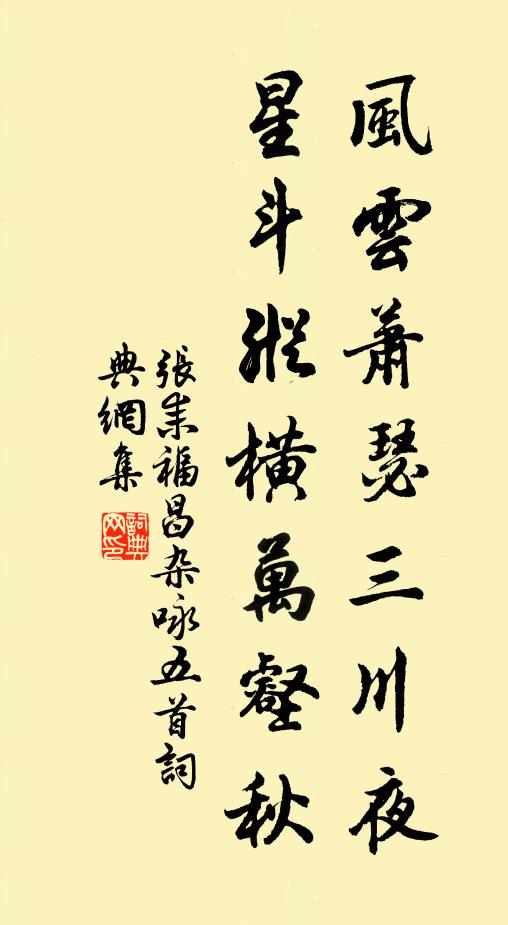 風雲蕭瑟三川夜
星斗縱橫萬壑秋
張耒福昌杂咏五首詞
典網集
詞典網印